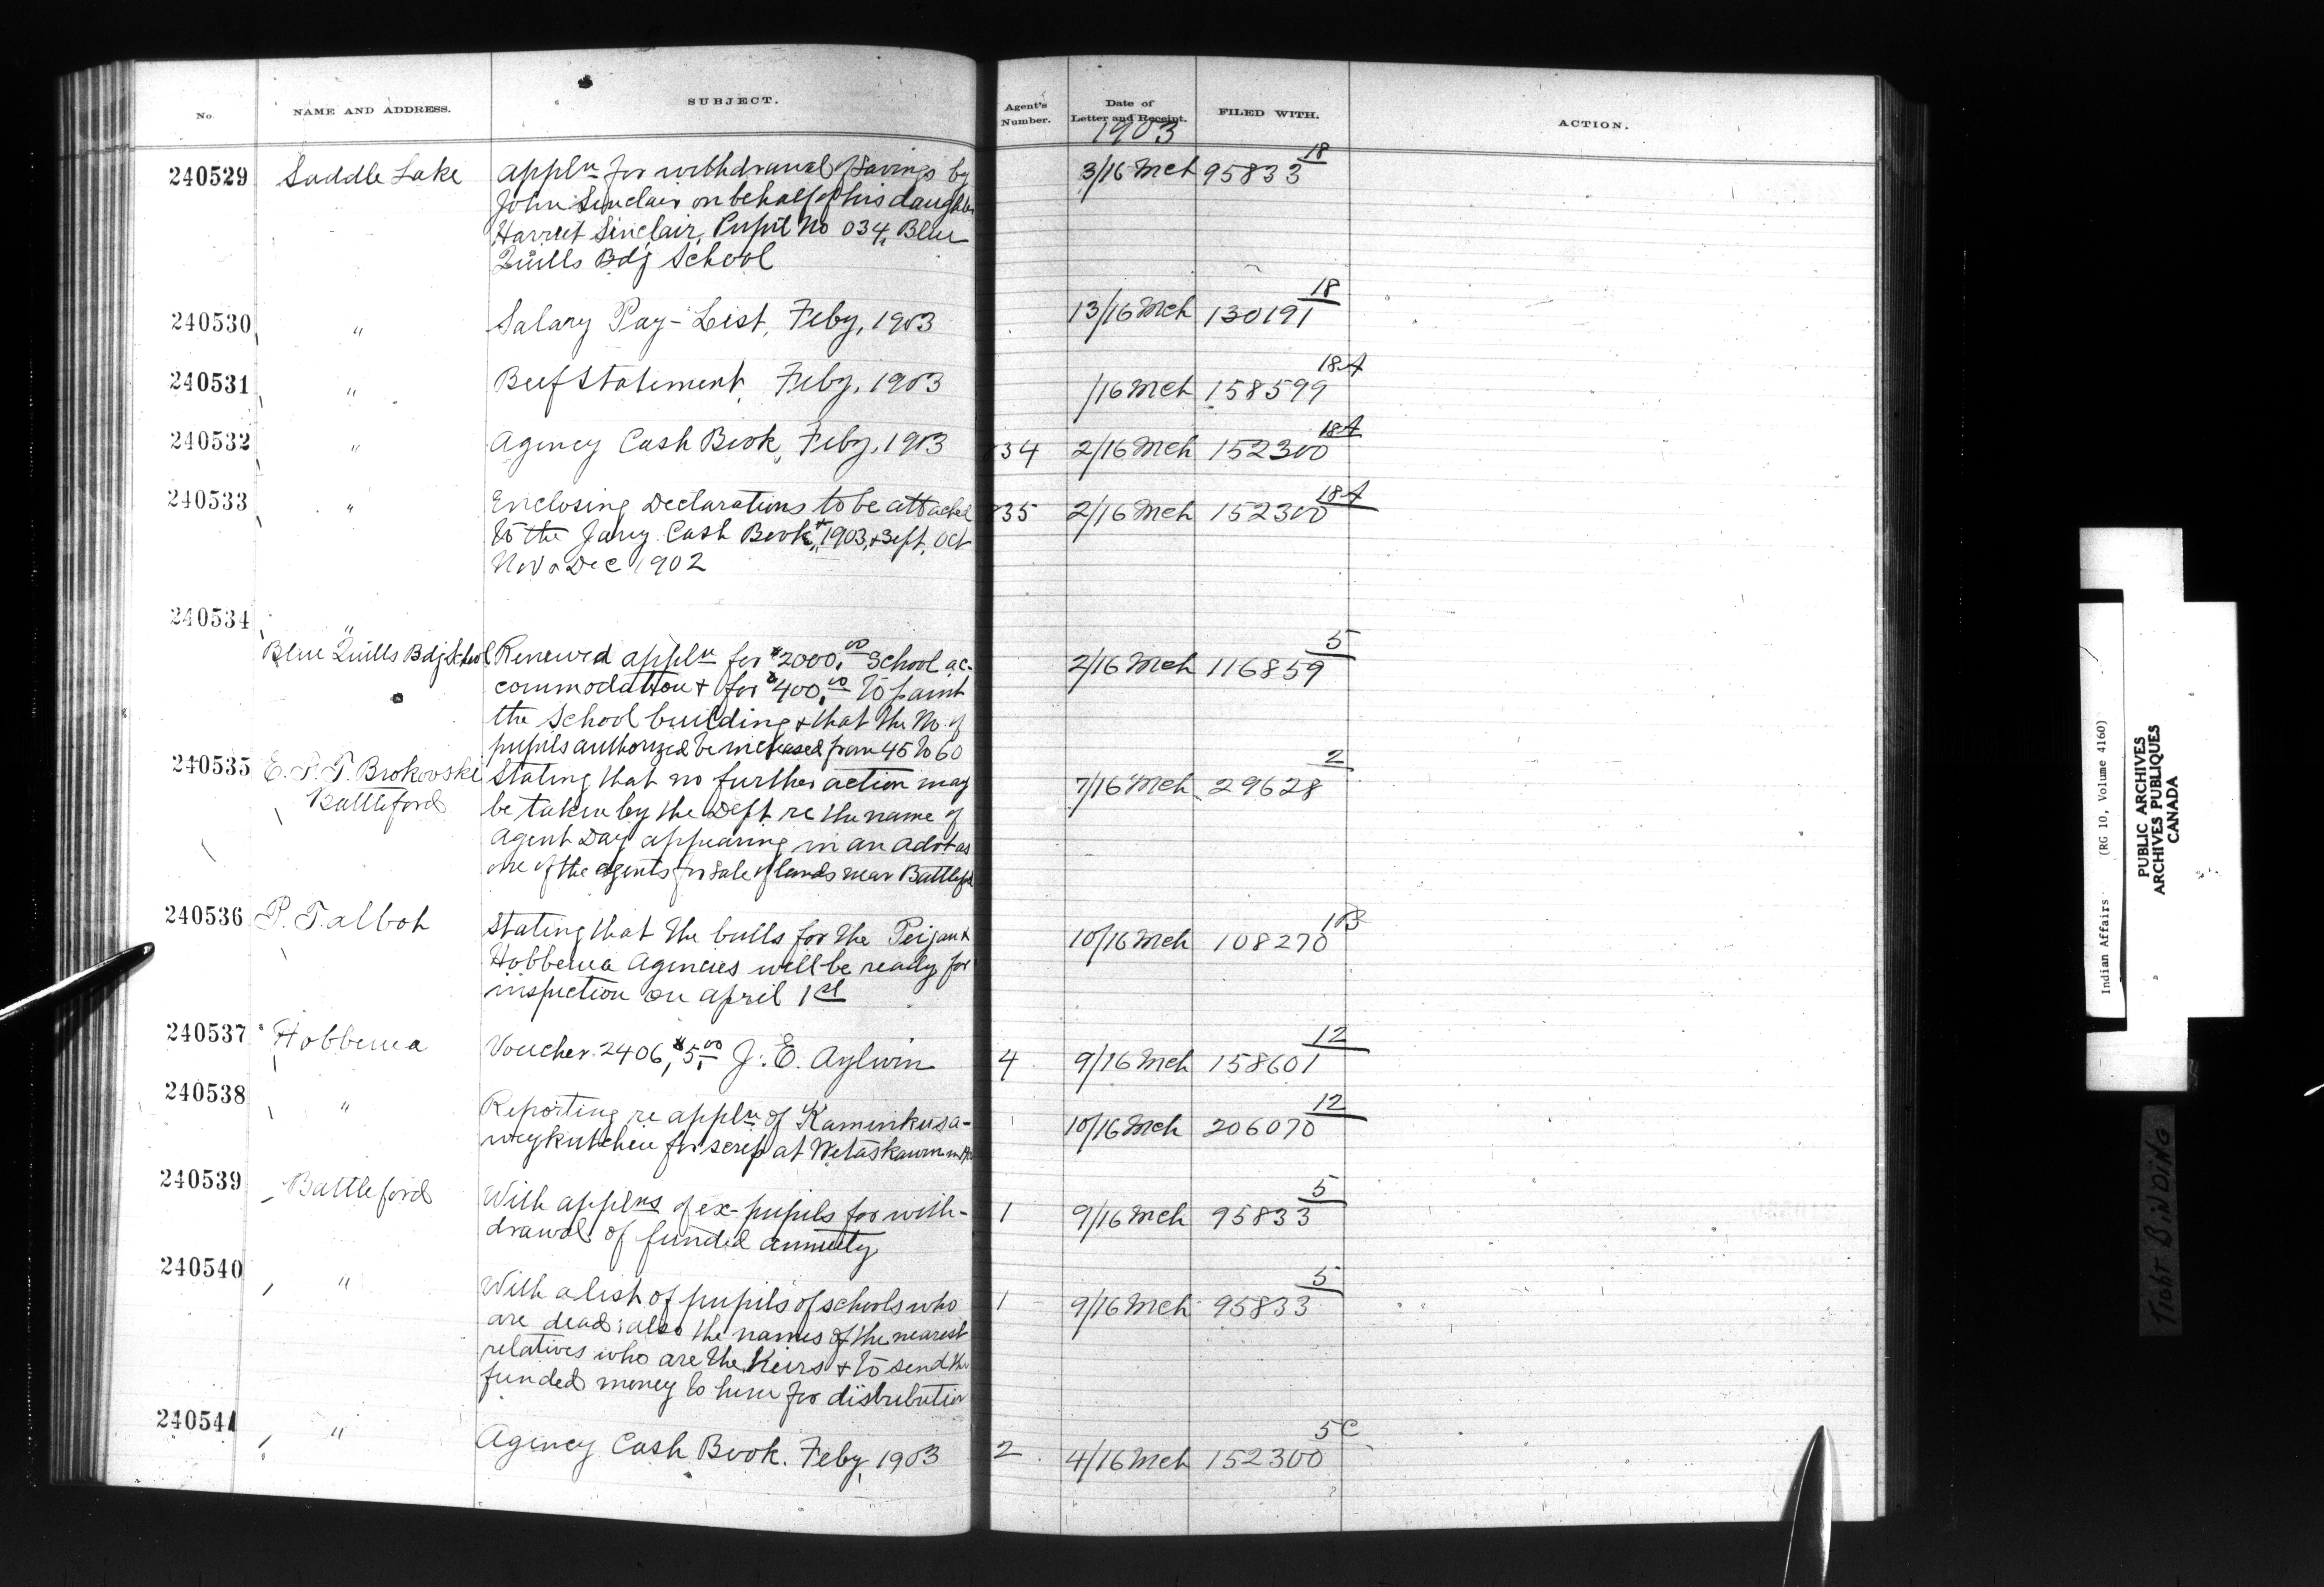 No.
NAME AND ADDRESS.
SUBJECT.
Agent's Number.
Date of Letter and Receipt.
1903
FILED WITH.
ACTION.
240529 Saddle Lake Appln for withdrawal of Savings by 3/16 Mch 95833 18
John Sinclair on behalf of his daughter
Harriet Sinclair, Pupil No 034, Blue
Quills Bdg School
240530 " Salary Pay-List, Feby, 1903 13/16 Mch 130191 18
240531 " Beef Statement, Feby, 1903 /16 Mch 158599 18A
240532 " Agency Cash Book, Feby, 1903 34 2/16 Mch 152300 18A
240533 " Enclosing Declarations to be attached 35 2/16 Mch 152300 18A
to the Jany Cash Book, 1903, + Sept, Oct
Nov & Dec 1902
240534 "
Blue Quills Bdg School Renewed appln for $2000.00 School ac- 2/16 Mch 116859 5
commodation + for $400.00 to paint
the School building + that the No. of
pupils authorized be increased from 45 to 60
240535 E. F. T. Brokovski Stating that no further action may 7/16 Mch 29628 2
Battleford be taken by the Dept re the name of
Agent Day appearing in an advt as
one of the agents for sale of lands near Battleford
240536 P. Talbot Stating that the bulls for the Peigan + 10/16 Mch 108270 1B
Hobbema Agencies will be ready for
inspection on April 1st
240537 Hobbema Voucher 2406, $5.00 J. E. Aylwin 4 9/16 Mch 158601 12
240538 " Reporting re appln of Kaminkusa- 10/16 Mch 206070 12
waykutcheu for scrip at Wetaskawin
240539 Battleford With applns of ex-pupils for with- 1 9/16 Mch 95833 5
drawal of funded annuity
240540 " With a list of pupils of schools who 1 9/16 Mch 95833 5
are dead; also the names of the nearest
relatives who are the Heirs + to send the
funded money to him for distribution
240541 " Agency Cash Book. Feby, 1903 2 4/16 Mch 152300 5C
Indian Affairs (RG 10, Volume 4160)
PUBLIC ARCHIVES
ARCHIVES PUBLIQUES
CANADA
TIGHT BINDING